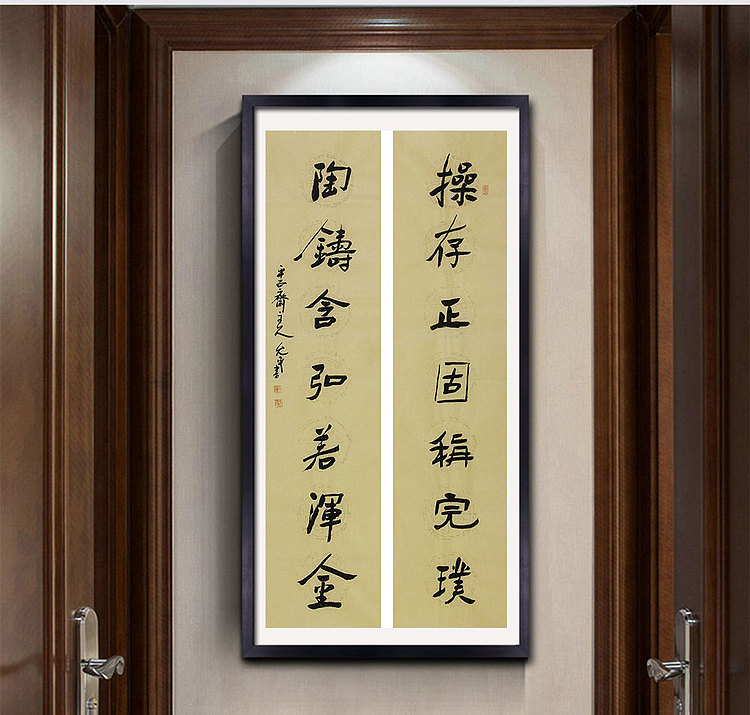 操存正固稱完璞
陶鑄含弘若渾金
主人
書